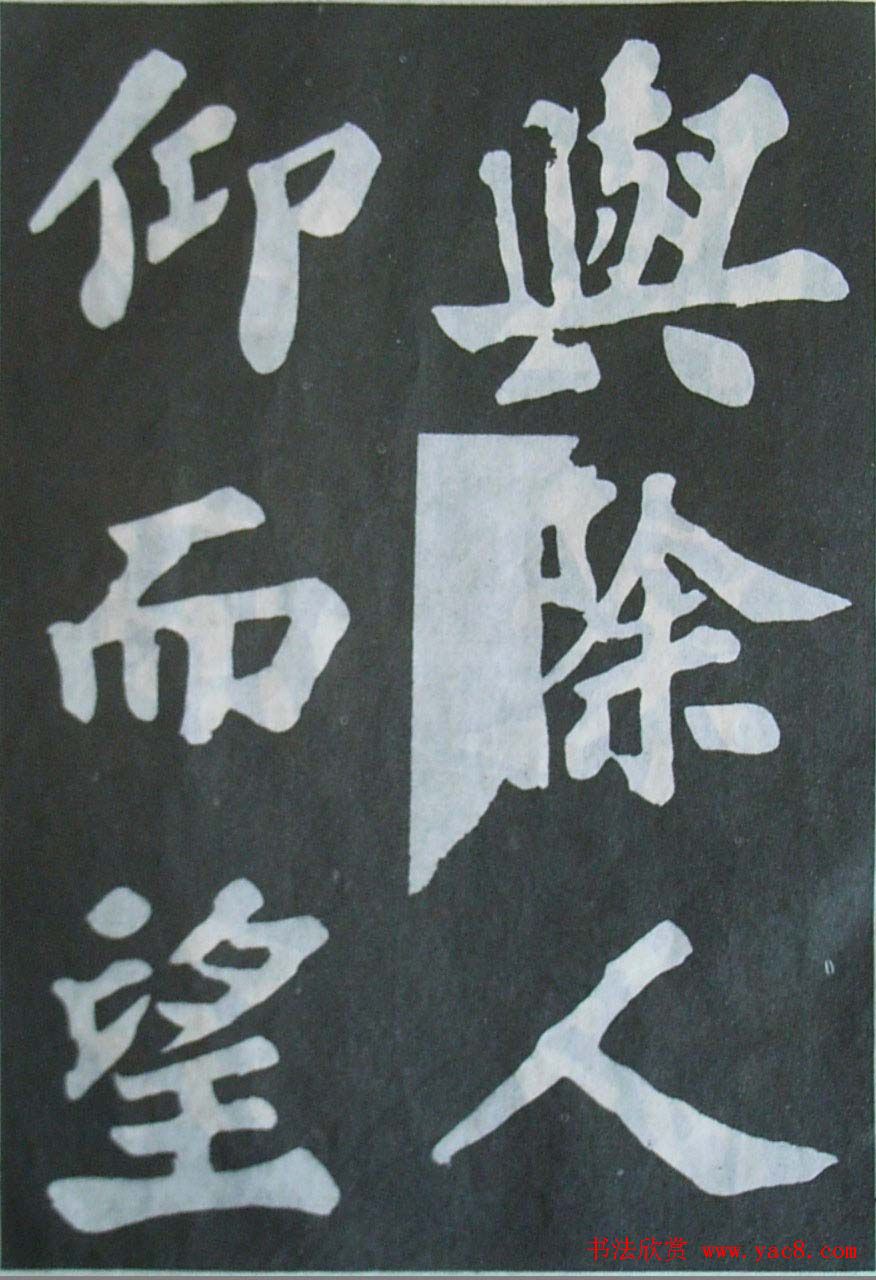 與滁人
仰而望
书法欣赏 www.yac8.com